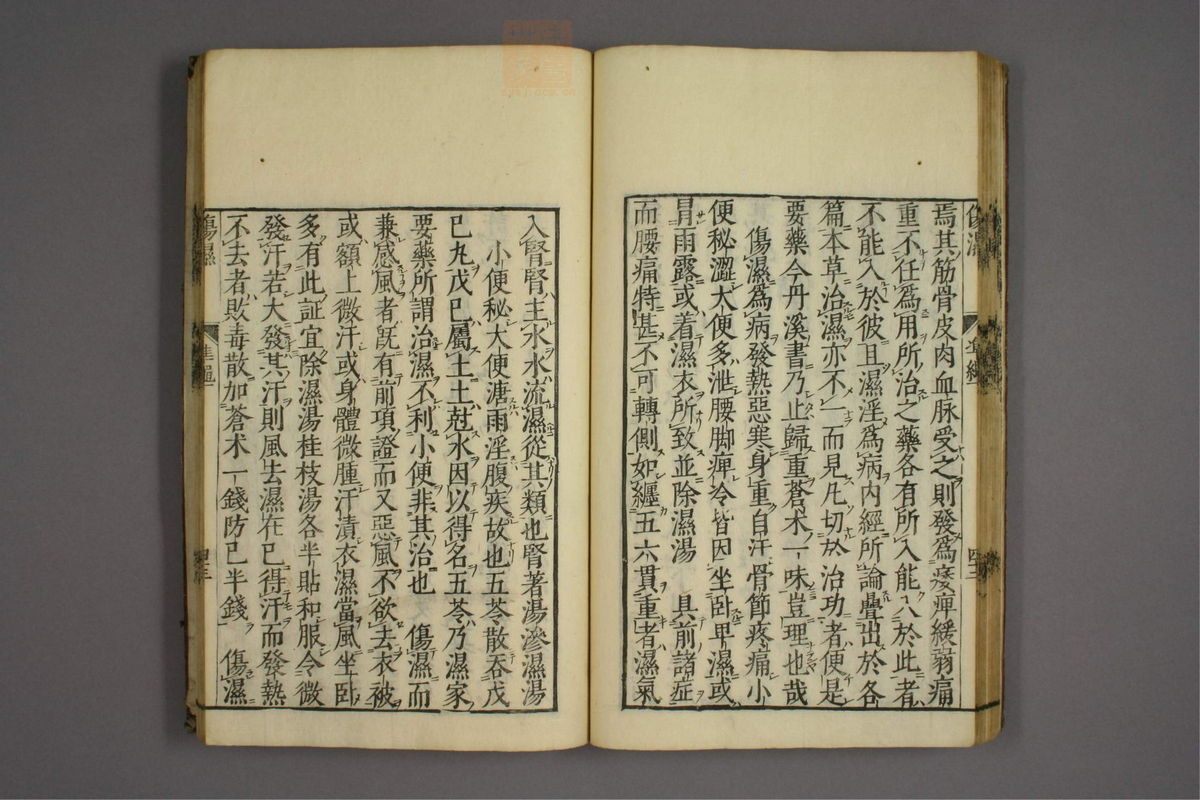 焉其筋骨皮肉血脉受之則發爲痿痺緩弱痛
重不任爲用所治之藥各有所入能入於此者
不能入於彼且濕淫爲病内經所論疊出於各
篇本草治濕亦不一而見凡切於治功者便是
要藥今丹溪書乃止歸重蒼术一味豈理也哉
傷濕爲病發熱惡寒身重自汗骨節疼痛小
便秘澀大便多泄腰脚痺冷皆因坐卧卑濕或
冒雨露或着濕衣所致並除濕湯 具前諸症
而腰痛特甚不可轉側如纏五六貫重者濕氣
入腎腎主水水流濕從其類也腎著湯滲濕湯
小便秘大便溏雨淫腹疾故也五苓散吞戊
已丸戊已屬土土尅水因以得名五苓乃濕家
要藥所謂治濕不利小便非其治也 傷濕而
兼感風者既有前項證而又惡風不欲去衣被
或額上微汗或身體微腫汗漬衣濕當風坐卧
多有此証宜除濕湯桂枝湯各半貼和服令微
發汗若大發其汗則風去濕在已得汗而發熱
不去者敗毒散加蒼术一錢防已半錢 傷濕
傷濕 準繩